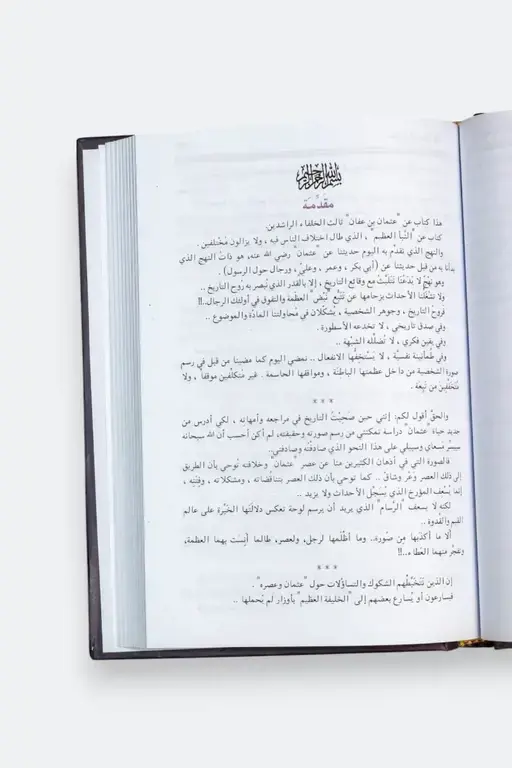 بسم الله الرحمن الرحيم
مقدمة
هذا كتاب عن "عثمان بن عفان" ثالث الخلفاء الراشدين.
كتاب عن "النبأ العظيم" ، الذي طال اختلاف الناس فيه ، ولا يزالون مختلفين .
والنهج الذي نقدم به اليوم حديثنا عن "عثمان" رضي الله عنه، هو ذات النهج الذي
بدأنا به من قبل حديثنا عن (أبي بكر ، وعمر ، وعلي ، ورجال حول الرسول) .
وهو نهج لا يدعنا نتلبث مع وقائع التاريخ ، إلا بالقدر الذي نبصر به روح التاريخ ..
ولا تشغلنا الأحداث بزحامها عن تتبع "نبض" العظمة والتفوق في أولئك الرجال..!!
فروح التاريخ ، وجوهر الشخصية ، يشكلان في محاولتنا المادة والموضوع ..
وفي صدق تاريخي ، لا تخدعه الأسطورة .
وفي يقين فكري ، لا تضلله الشبهة ..
وفي طمأنينة نفسية ، لا يستخفها الانفعال .. نمضي اليوم كما مضينا من قبل في رسم
صورة الشخصية من داخل عظمتها الباطنة ، ومواقفها الحاسمة . غير متكلفين موقفا ، ولا
متخففين من تبعة .
* * *
والحق أقول لكم: إنني حين صحبت التاريخ في مراجعه وأمهاته ، لكي أدرس من
جديد حياة "عثمان" دراسة تمكنني من رسم صورته وحقيقته، لم أكن أحسب أن الله سبحانه
سييسر مسعاي وسبيلي على هذا النحو الذي صادفته وصادفني.
فالصورة التي في أذهان الكثيرين منا عن عصر "عثمان" وخلافته توحي بأن الطريق
إلى ذلك العصر وعر وشاق .. كما توحي بأن ذلك العصر بتناقضاته ، ومشكلاته ، وفتنه ،
إنما يسعف المؤرخ الذي يسجل الأحداث ولا يزيد ..
لكنه لا يسعف "الرسام" الذي يريد أن يرسم لوحة تعكس دلالتها الخيرة على عالم
القيم والقدوة ..
ألا ما أكذبها من صورة.. وما أظلمها لرجل، ولعصر، طالما أنست بهما العظمة،
وتفجر منهما العطاء..!!
* * *
إن الذين تتخبطهم الشكوك والتساؤلات حول "عثمان وعصره" .
فيسارعون أو يسارع بعضهم إلى "الخليفة العظيم" بأوزار لم يحملها ..